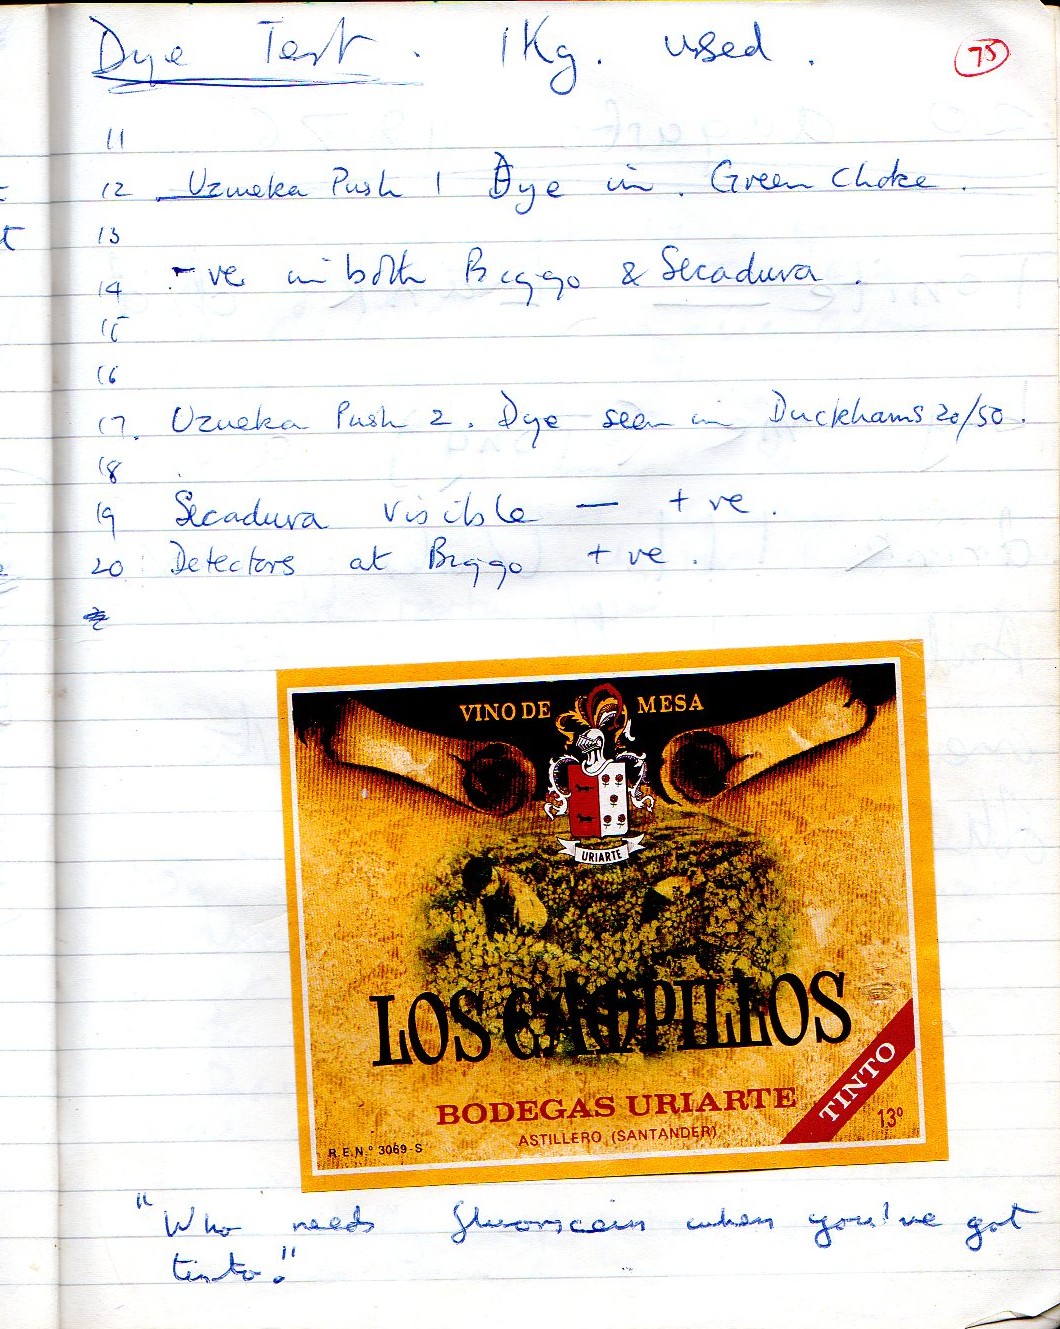 Dye Test. 1Kg. used.
75
11
12 Uzueka Push 1 Dye in. Green Choke.
13
14 -ve in both Biggo & Secadura.
15
16
17. Uzueka Push 2. Dye seen in Duckhams 20/50.
18
19 Secadura visible — +ve.
20 Detectors at Biggo +ve.
VINO DE MESA
URIARTE
LOS CAMPILLOS
TINTO
BODEGAS URIARTE
13º
ASTILLERO (SANTANDER)
R.E.N.º 3069-S
"Who needs fluorscein when you've got
tinto."